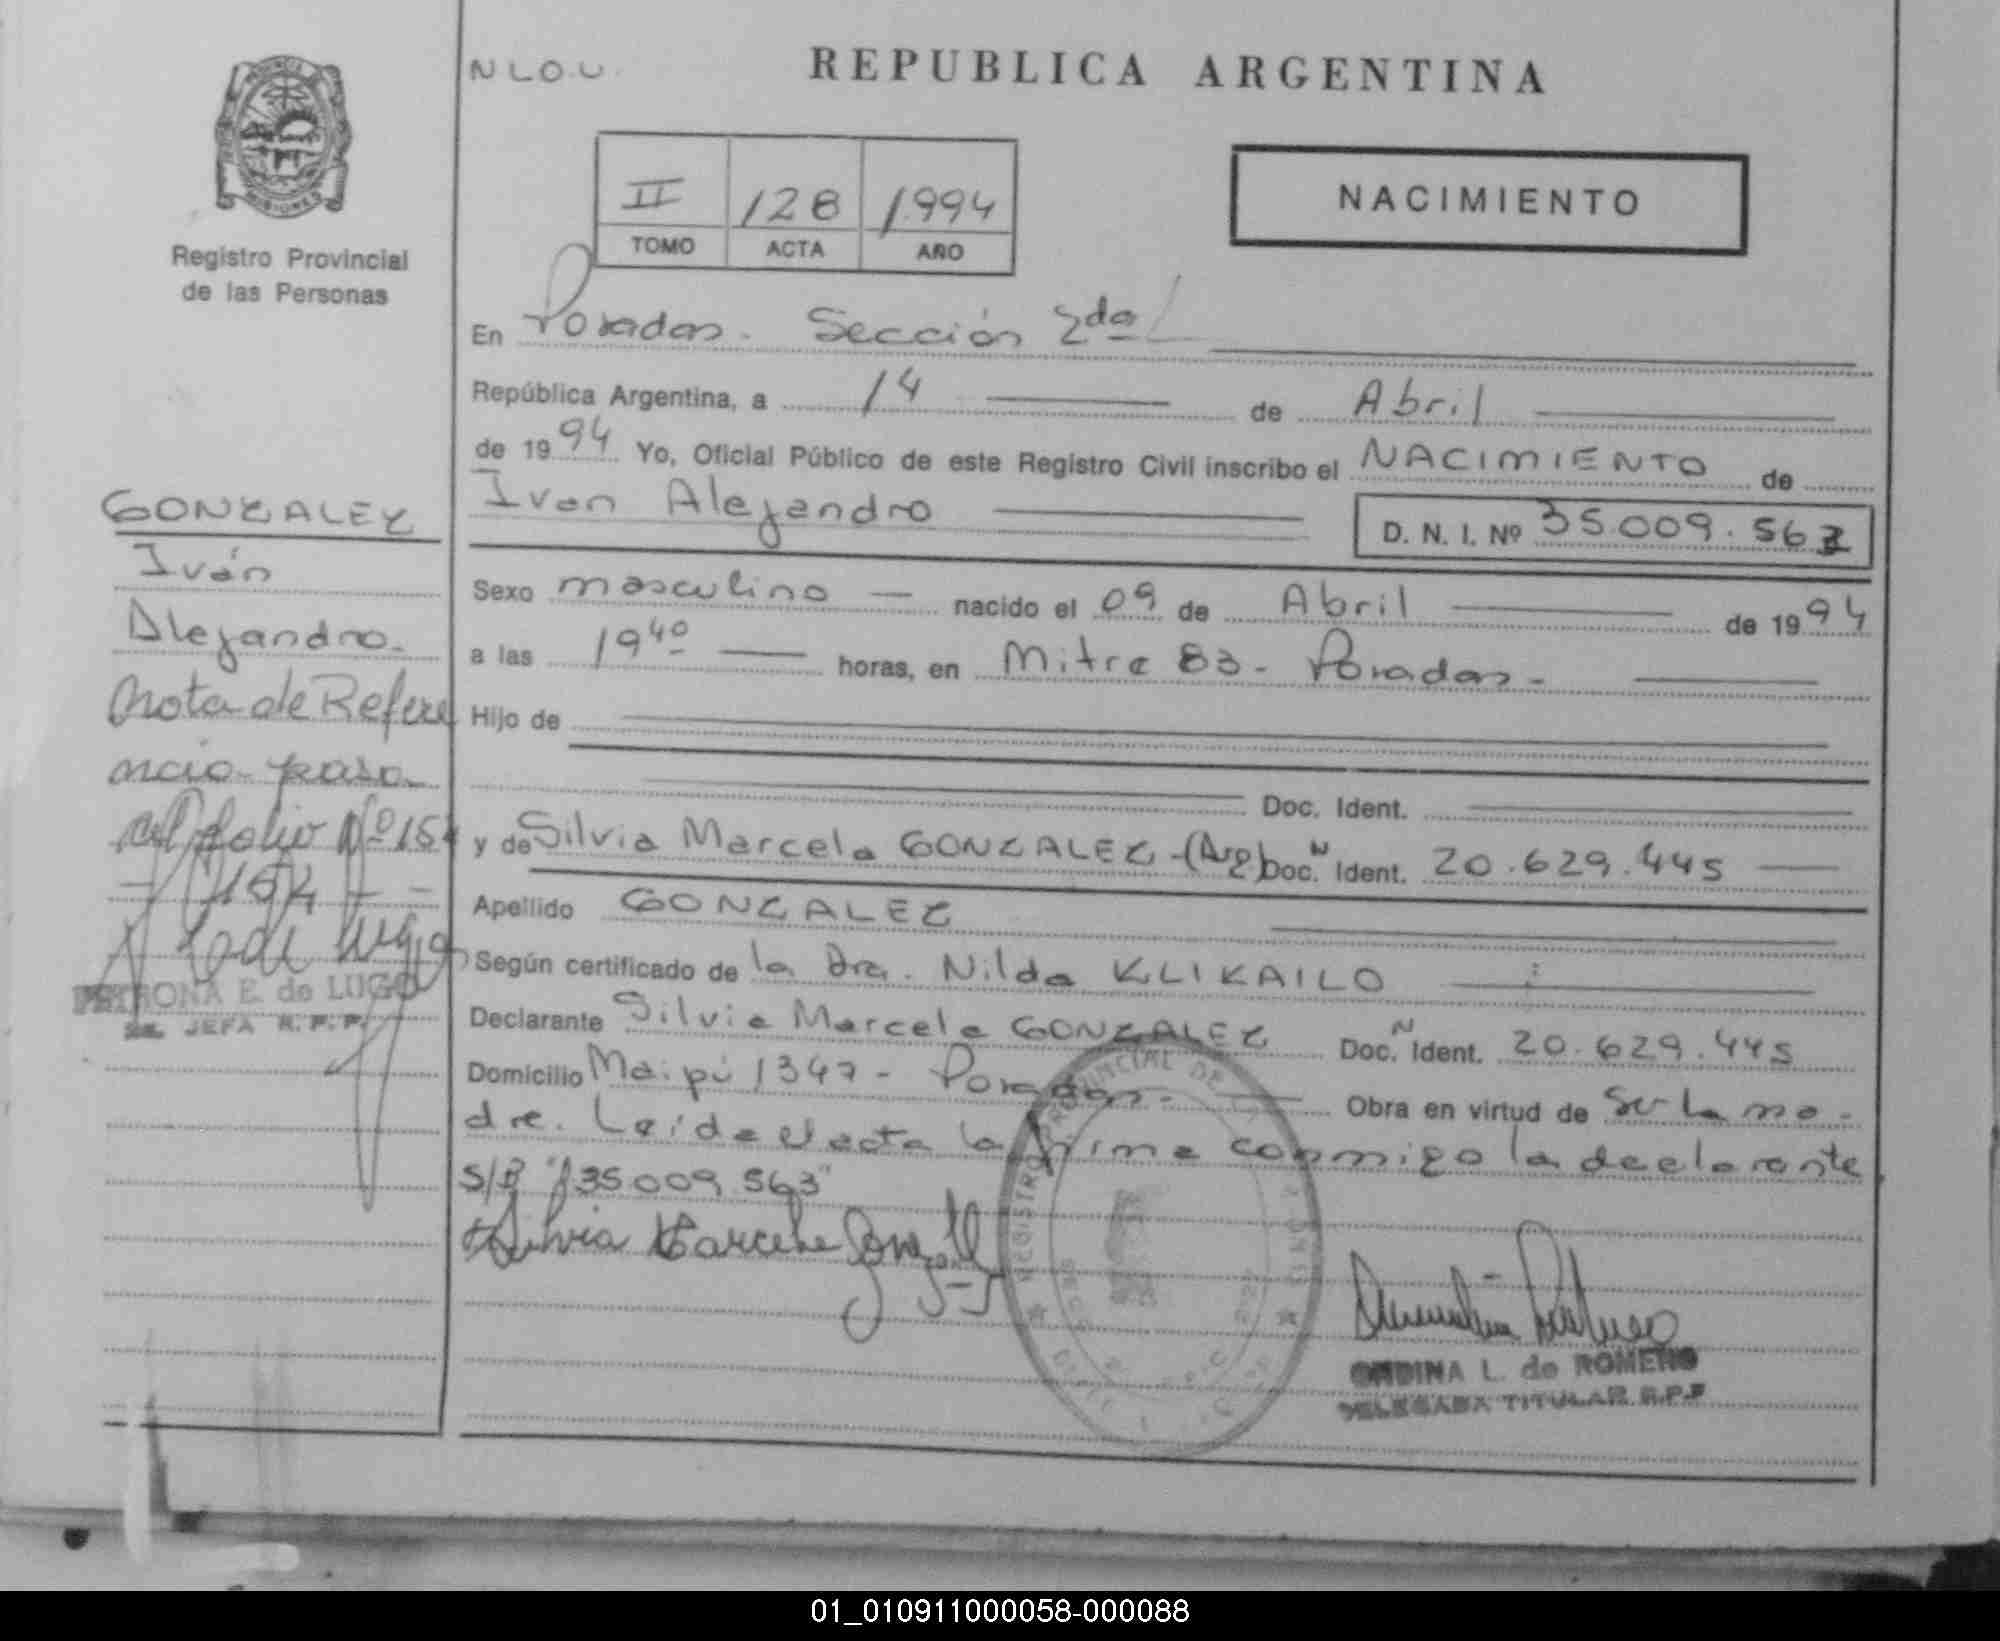 PROVINCIA DE
MISIONES
Registro Provincial
de las Personas
NLO.U.
REPUBLICA ARGENTINA
II 128 1994
TOMO ACTA AÑO
NACIMIENTO
En Posadas. Sección 2da
República Argentina, a 14 de Abril
de 1994 Yo, Oficial Público de este Registro Civil inscribo el NACIMIENTO de
Ivan Alejandro D. N. I. Nº 35.009.563
Sexo masculino nacido el 09 de Abril de 1994
a las 19 40 horas, en Mitre 83 - Posadas.-
Hijo de
Doc. Ident.
y de Silvia Marcela GONZALEZ - (Arg) Doc. N Ident. 20.629.445
Apellido GONZALEZ
Según certificado de la Dra. Nilda KLIKAILO
Declarante Silvia Marcela GONZALEZ Doc. N Ident. 20.629.445
Domicilio Maipú 1347 - Posadas.- Obra en virtud de ser la ma-
dre. Leída el acta la firma conmigo la declarante
S/B "35009.563"
Silvia Marcela Gonzalez
REGISTRO PROVINCIAL DE
ONDINA L. de ROMERO
DELEGADA TITULAR R.P.P.
GONZALEZ
Iván
Alejandro.
Nota de Refere
ncia pasa
al folio Nº 154
- 154 - -
PETRONA E. de LUGO
JEFA R.P.P.
01_010911000058-000088